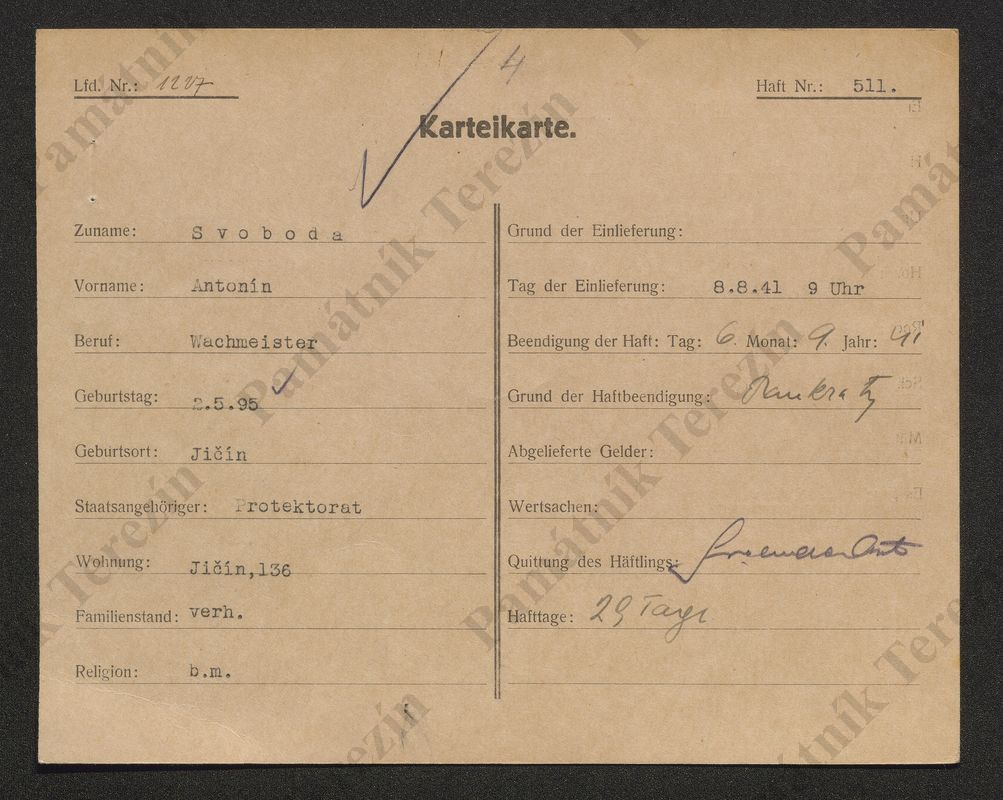 Lfd. Nr.: 1227
4
Haft Nr.: 511.
Karteikarte.
Zuname: Svoboda
Vorname: Antonín
Beruf: Wachmeister
Geburtstag: 2.5.95
Geburtsort: Jičín
Staatsangehöriger: Protektorat
Wohnung: Jičín,136
Familienstand: verh.
Religion: b.m.
Grund der Einlieferung:
Tag der Einlieferung: 8.8.41 9 Uhr
Beendigung der Haft: Tag: 6. Monat: 9. Jahr: 41
Grund der Haftbeendigung: Pankratz
Abgelieferte Gelder:
Wertsachen:
Quittung des Häftlings:
Hafttage: 29 Tage
Památník Terezín
Památník Terezín
Památník Terezín
Památník Terezín